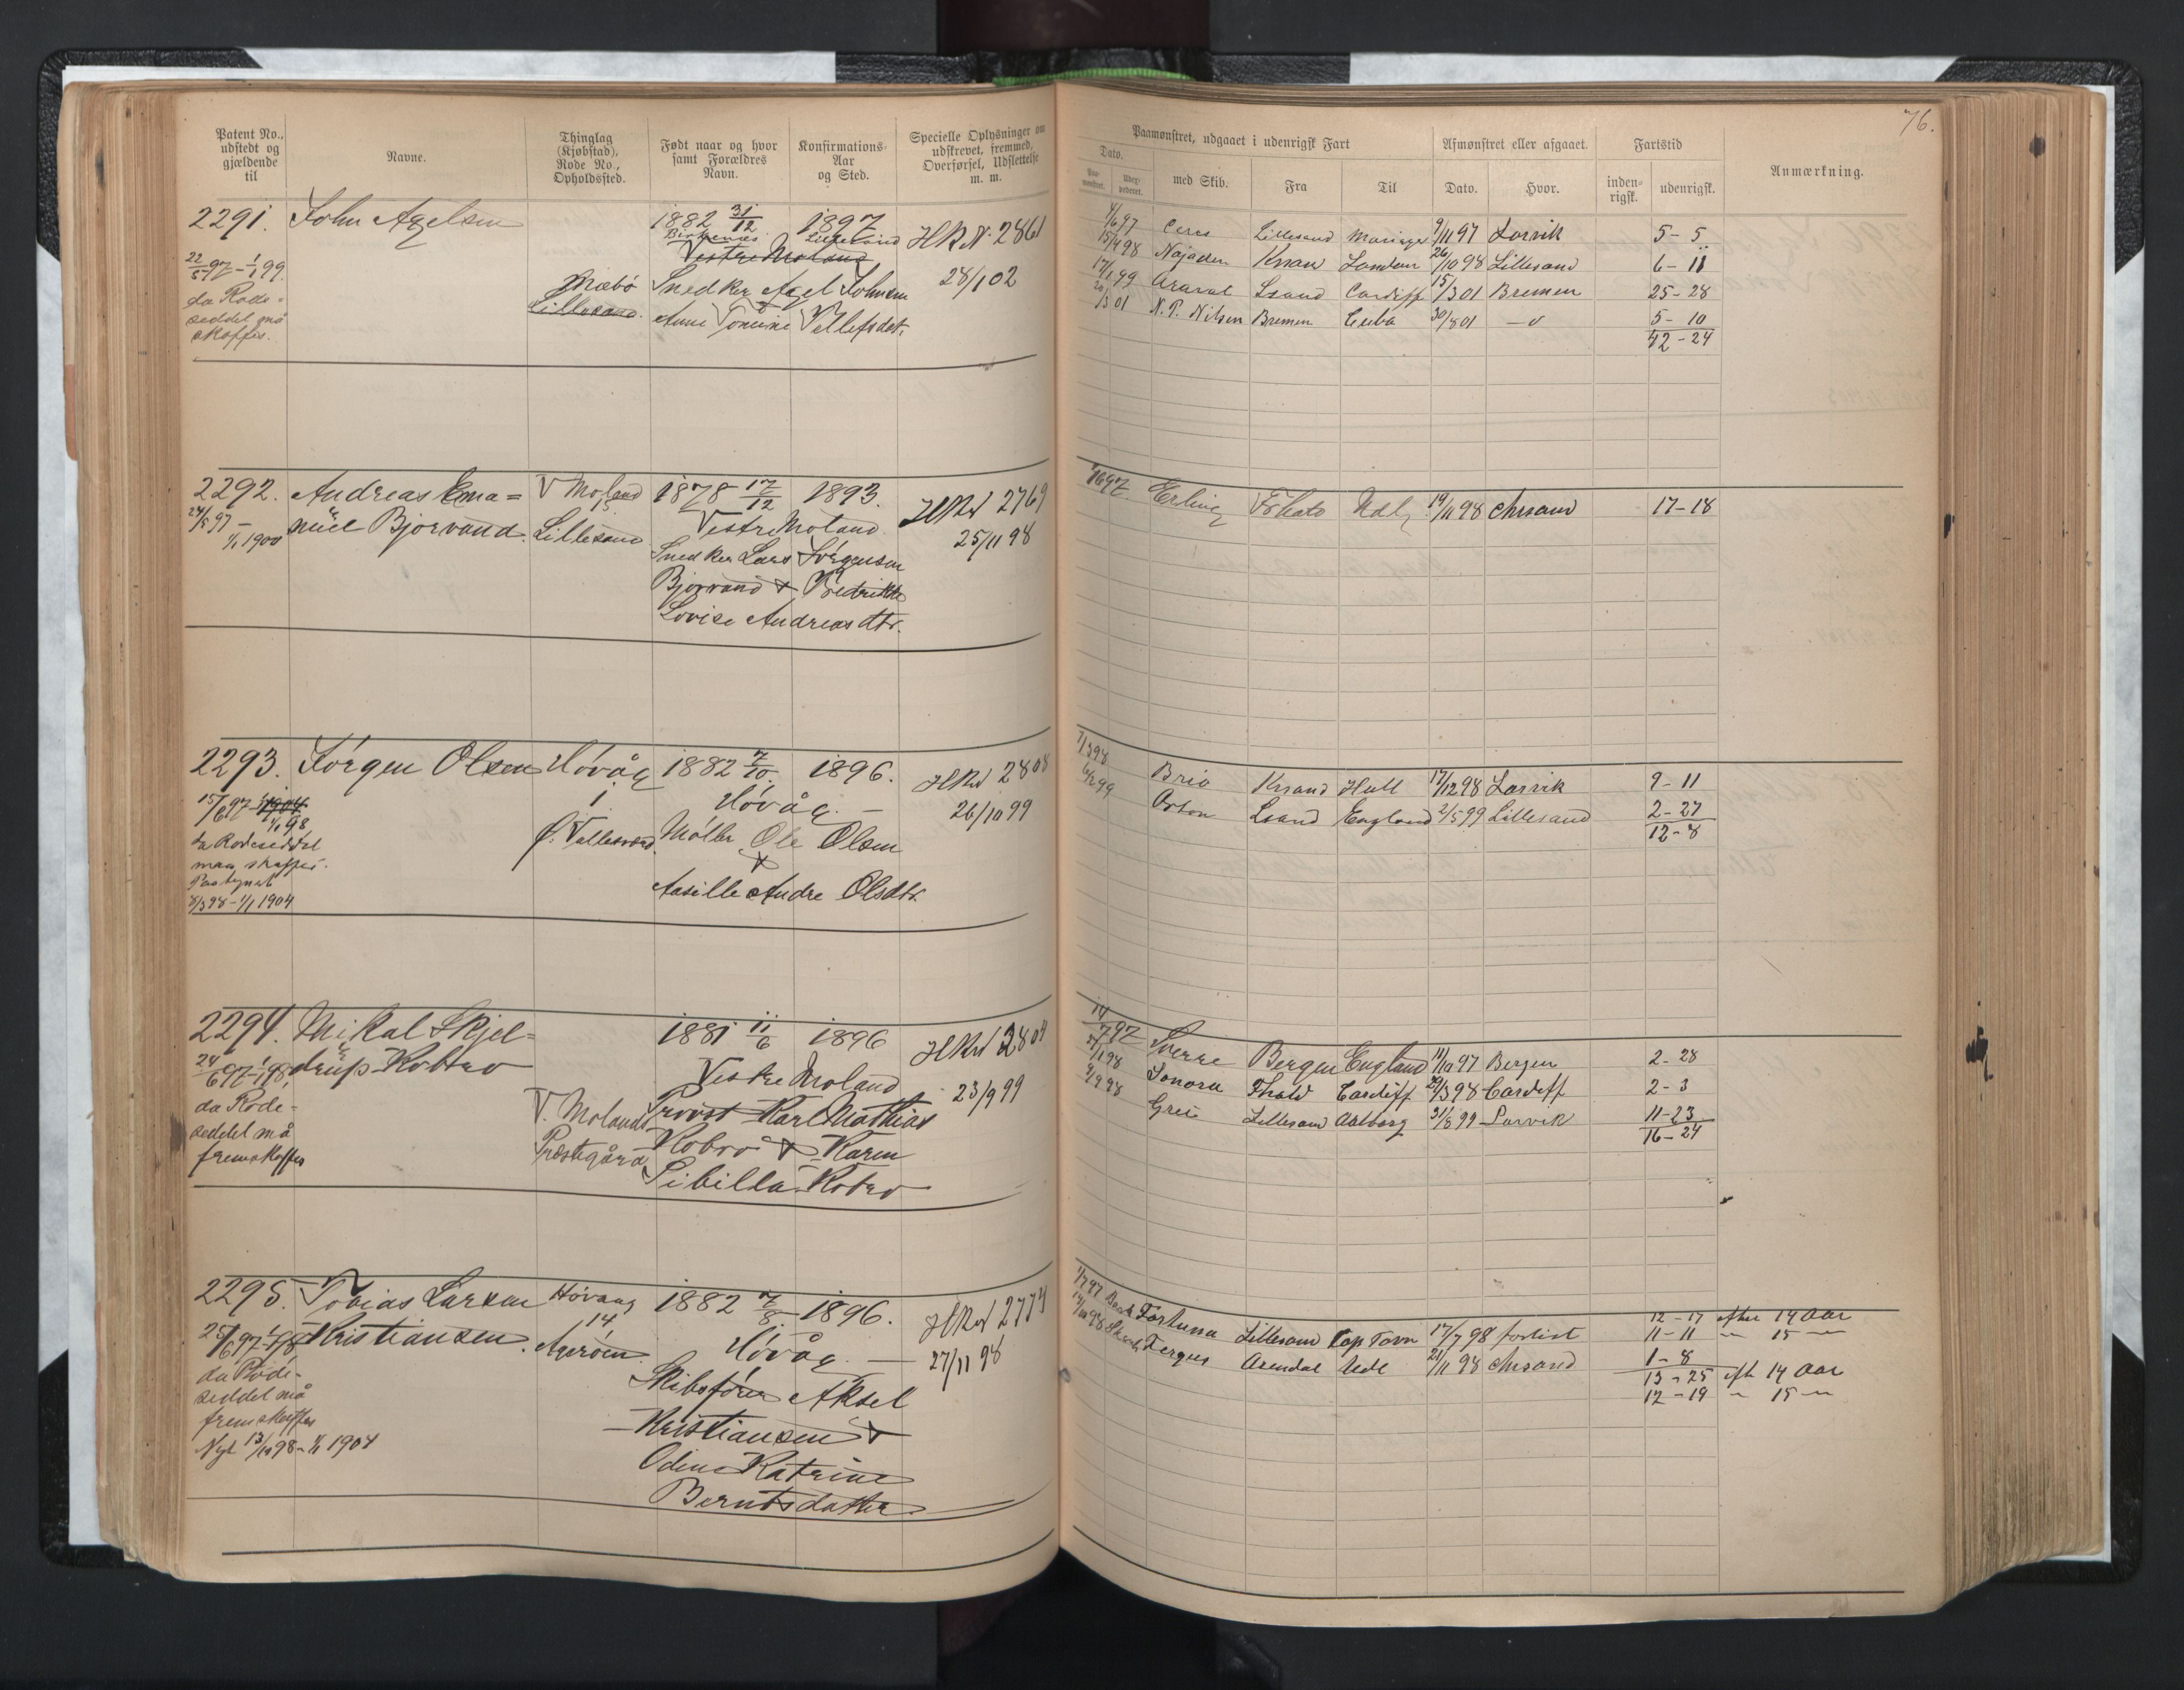 Patent No., udstedt og gjældende til
Navne.
Thinglag (Kjøbstad), Rode No., Opholdssted.
Født naar og hvor samt Forældres Navn.
Konfirmations-Aar og Sted.
Specielle Oplysninger om udskrevet, fremmed, Overførsel, Udslettelse m. m.
2291. John Axelsen 1882 31/12 1897 HR N. 2861
Birkenæs Lillesand
Vestre Moland
22/5 97 - 1/1 99. Mæbø Snedker Axel Johnsen 28/1 02
da Rode- Lillesand &
seddel må Anne Tomine Vellefsdat.
skaffes.
2292. Andreas Ema= V Moland 1878 17/12 1893. HRN 2769
24/5 97 - nuel Bjorvand. 5 Vestre Moland. 25/11 98
1/1 1900 Lillesand Snedker Lars Jørgensen
Bjorvand & Fredrikke
Lovise Andreasdtr.
2293. Jörgen Olsen Høvåg 1882 7/10. 1896. HRN 2808
15/6 97 - 1/1 1904 1 Høvåg. — 26/10 99
1/1 98 Ø. Vallesværd. Møller Ole Olsen
da Rodeseddel &
maa skaffes. Aasille Andre Olsdtr.
Paategnet
8/3 98 - 1/1 1904
2294. Mikal Skjel= 1881 11/6 1896 HRN 2804
24/6 97 - 1/1 98, drup Kobro Vestre Moland 23/9 99
da Rode- V. Molands Provst Karl Mathias
seddel må Præstegård Kobro & Karen
fremskaffes Sibilla Kobro
2295. Tobias Larsen Høvaag 1882 7/8 1896. HRN 2774
25/6 97 - 1/1 98 Kristiansen. 14 Høvåg. — 27/11 98
da Rode- Agerøen. Skibsfører Aksel
seddel må Kristiansen &
fremskaffes Odine Katrine
Nyt 13/10 98 - 1/1 1904 Berntsdatter
76.
Paamønstret, udgaaet i udenrigsk Fart
Afmønstret eller afgaaet.
Fartstid
Anmærkning.
Dato.
med Skib.
Fra
Til
Dato.
Hvor.
inden-rigsk.
udenrigsk.
4/6 97 Ceres Lillesand Mariager 9/11 97 Larvik 5 - 5
15/4 98 Najaden Krsand London 26/10 98 Lillesand 6 - 11
17/1 99 Ararat Lsand Cardiff 15/3 01 Bremen 25 - 28
20/3 01 N. P. Nilsen Bremen Cuba 30/8 01 — " 5 - 10
42 - 24
Erling 19/11 98 Chrsand 17 - 18
7/3 98 Brio Krsand Hull 17/12 98 Larvik 9 - 11
6/2 99 Orton Lsand England 2/5 99 Lillesand 2 - 27
12 - 8
14/7 97 Sverre Bergen England 11/10 97 Bergen 2 - 28
27/1 98 Sonora Cardiff 29/3 98 Cardiff 2 - 3
9/9 98 Lillesand Aalborg 31/8 99 Larvik 11 - 23
16 - 24
1/7 97 Bark Fortuna Lillesand Cap Town 17/7 98 forlist 12 - 17 efter 14 Aar
11 - 11 " 15 "
14/10 98 Fergus Arendal Uedl 21/11 98 Chrsand 1 - 8
13 - 25 eft 14 Aar
12 - 19 " 15 "